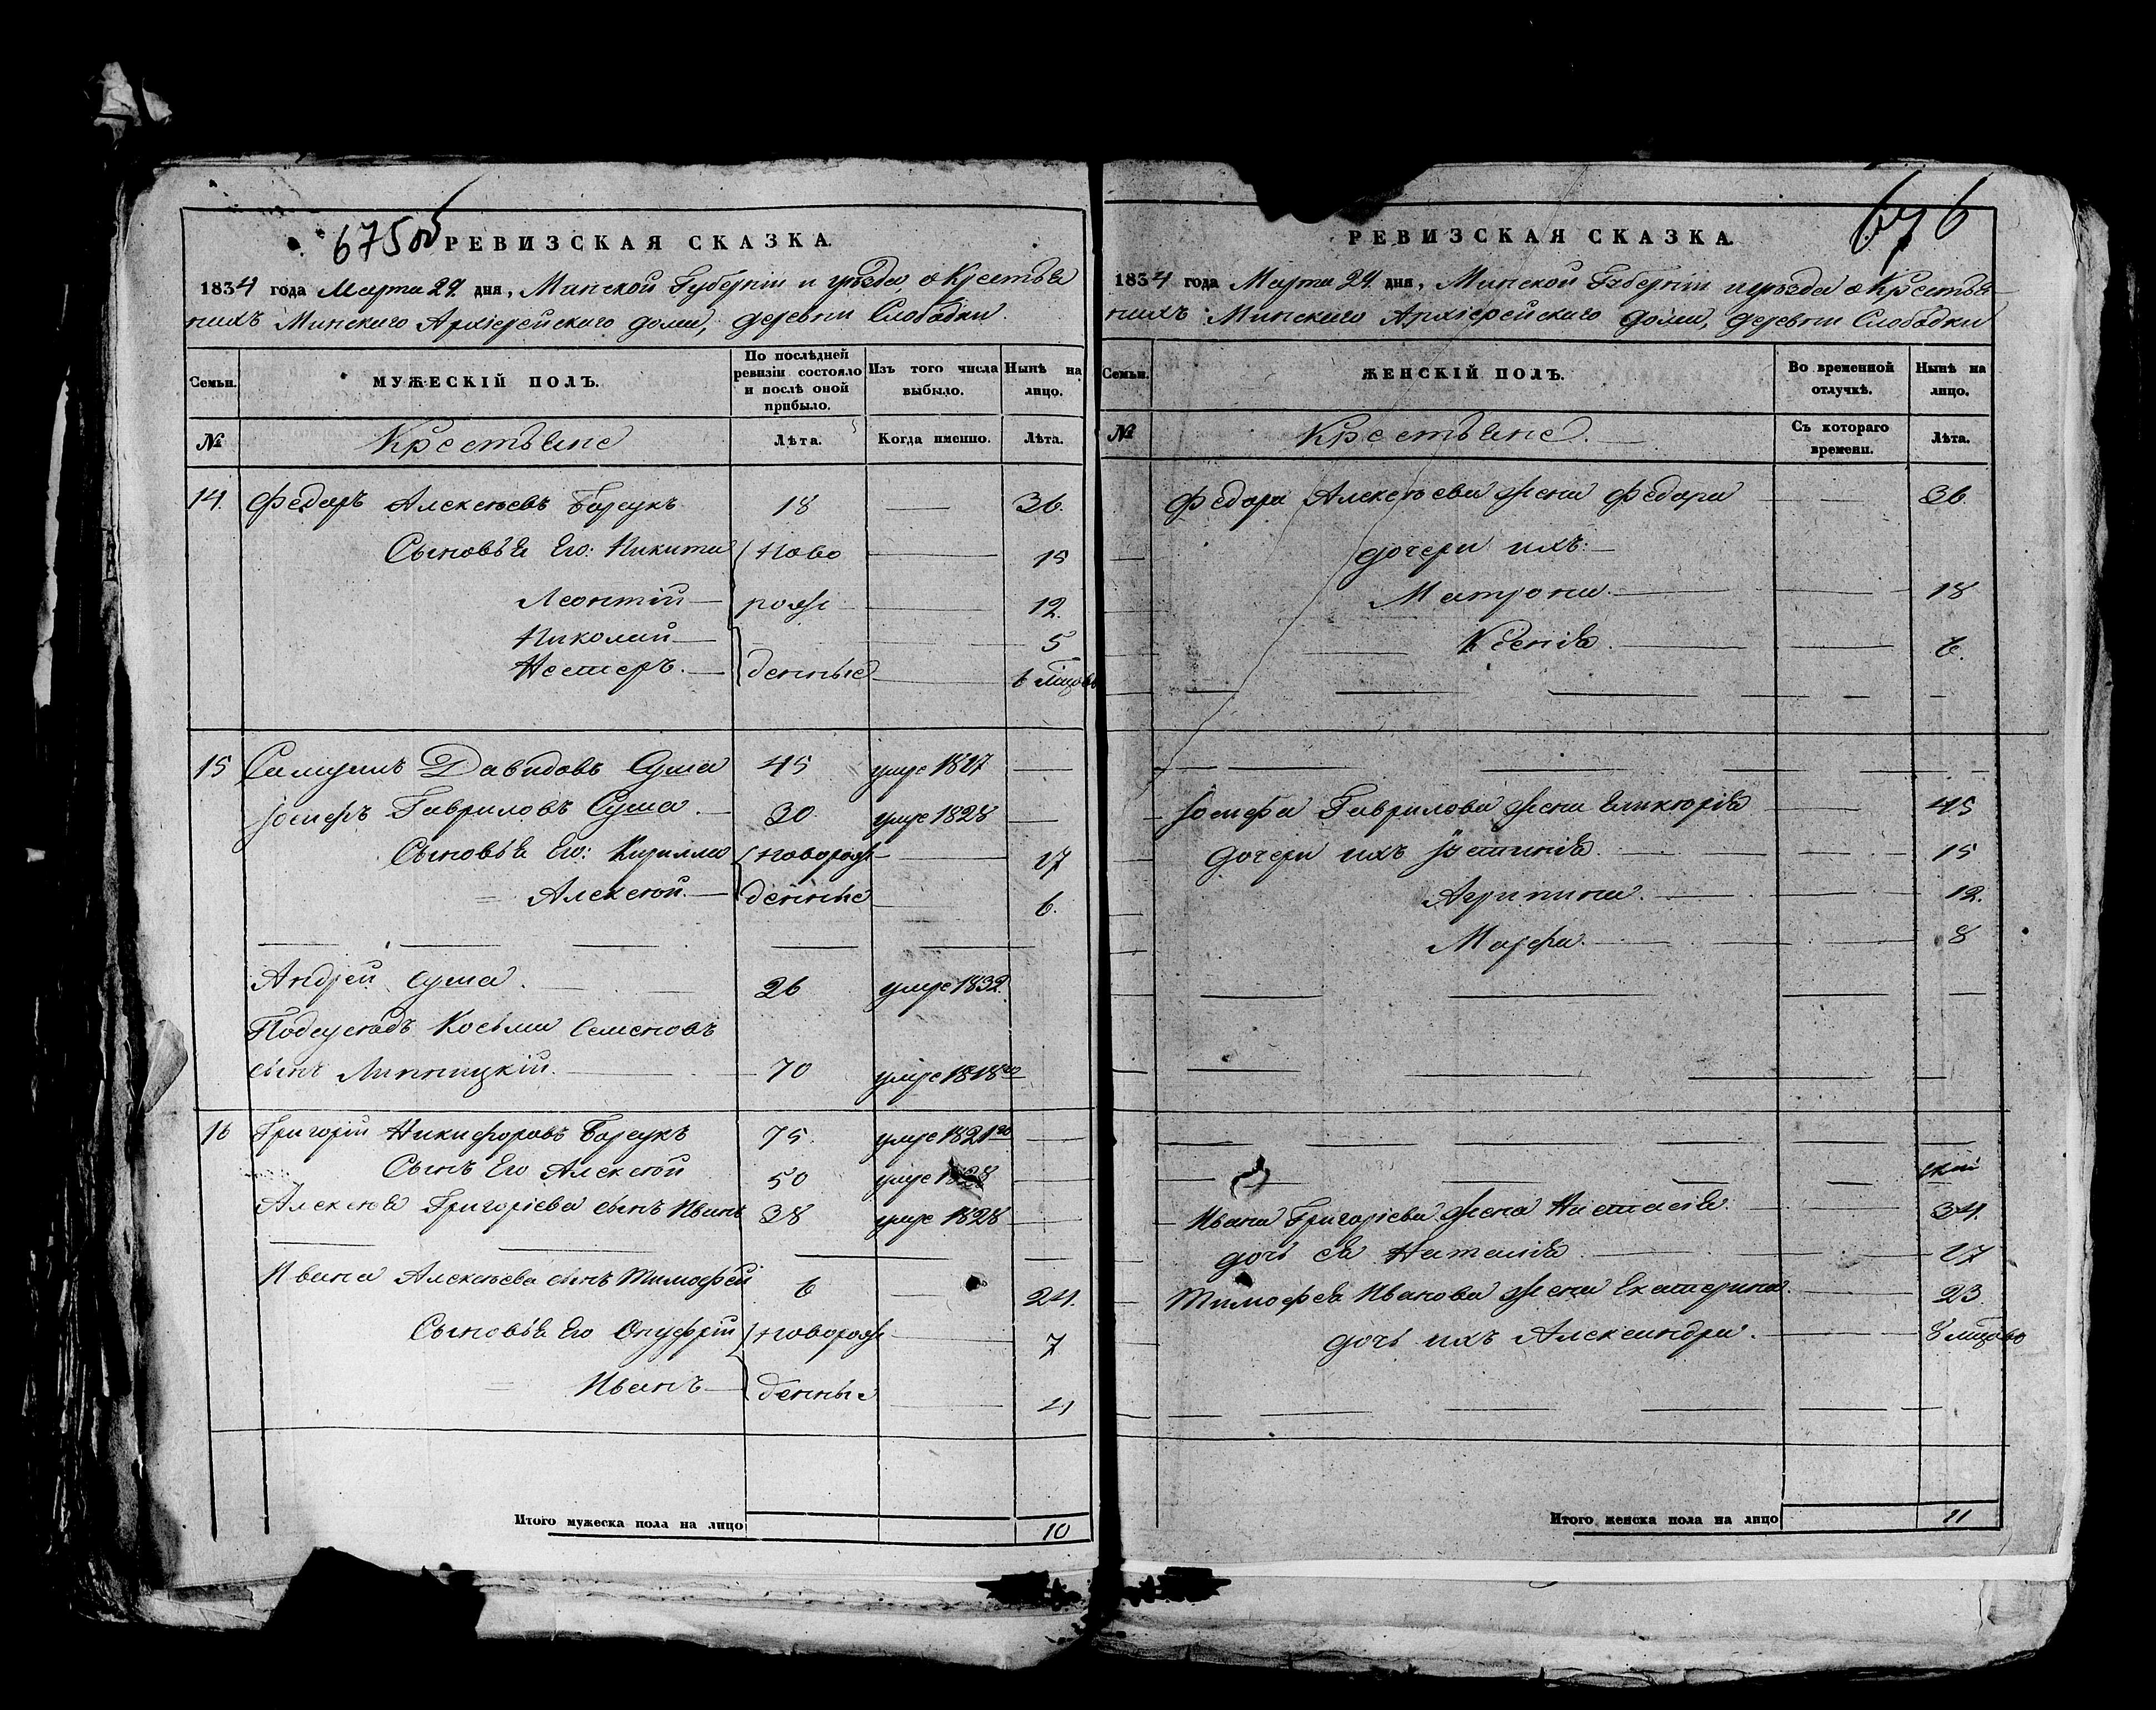 675 об
РЕВИЗСКАЯ СКАЗКА.
1834 года Марта 24 дня, Минской Губерніи и уѣзда, о Крестья
нихъ Минскаго Архіерейскаго дома, деревни Слободки.
Семьи. МУЖЕСКІЙ ПОЛЪ. По послѣдней ревизіи состояло и послѣ оной прибыло. Изъ того числа выбыло. Нынѣ на лицо.
№ Крестьяне Лѣта. Когда именно. Лѣта.
14. Федоръ Алексѣевъ Борсукъ 18 — 36.
Сыновья Его: Никита Ново — 15
Леонтій — рож — 12.
Николай — 5
Нестеръ. — денные — 6 мѣцовъ
15 Самуилъ Давидовъ Сума 45 умре 1827 —
Іосифъ Гавриловъ Сума. — 30. умре 1828 —
Сыновья Его: Кирилло новорож — 17
= Алексѣй. — денные — 6.
Андрей Сума. 26 умре 1832.
Подсусѣдъ Косьма Семеновъ
сынъ Липницкій. 70 умре 1818го
16 Григорій Никифоровъ Борсукъ 75. умре 1821го —
Сынъ Его Алексѣй 50 умре 1828 —
Алексѣя Григоріева сынъ Иванъ 38 умре 1828 —
Ивана Алексѣева сынъ Тимофей 6 — 24.
Сыновья Его Онуфрій новорож — 7
= Иванъ — денные — 4
Итого мужеска пола на лицо 10
676
РЕВИЗСКАЯ СКАЗКА.
1834 года Марта 24 дня, Минской Губерніи и уѣзда о Крестья—
нихъ Минскаго Архіерейскаго дома, деревни Слободки
Семьи. ЖЕНСКІЙ ПОЛЪ. Во временной отлучкѣ. Нынѣ на лицо.
№ Крестьяне. Съ котораго времени. Лѣта.
Федора Алексѣева жена Федора — 36.
дочери ихъ: —
Матрона. — 18
Ксенія. — 6.
Іосифа Гаврилова жена — 45
дочери ихъ Іустинія. — 15
Агрипина. — 12.
Марфа. — 8
Ивана Григоріева жена Настасія. — 34.
дочь ея Наталія — 17
Тимофея Иванова жена Екатерина. — 23.
дочь ихъ Александра. — 8 мѣцовъ
Итого женска пола на лицо 11